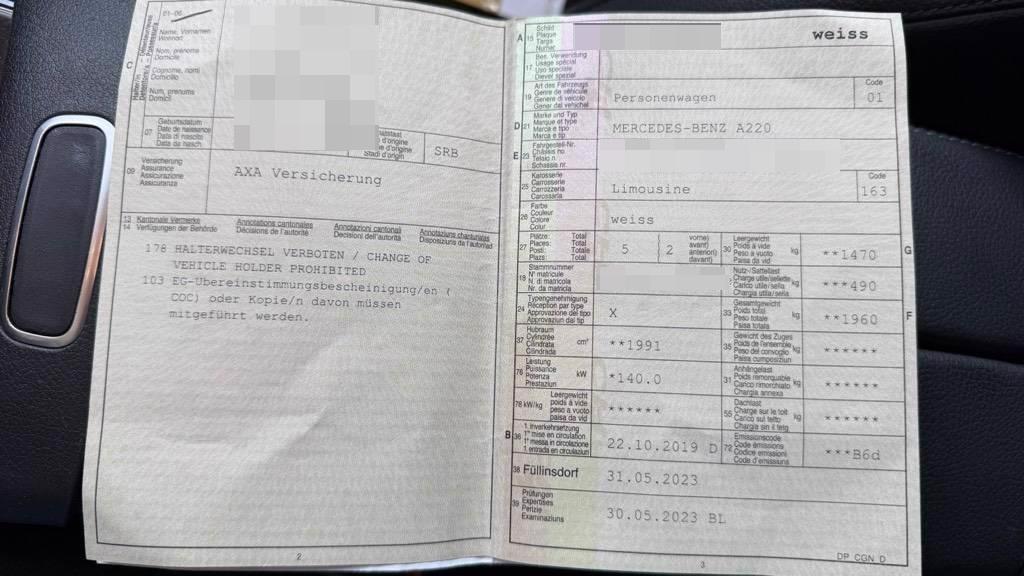 01-06
Name, Vornamen
Wohnort
Nom, prénoms
Domicile
Cognome, nomi
Domicilio
Num, prenums
Domicil
C
07
Geburtsdatum
Date de naissance
Data di nascita
Data da nasch.
d'origine
Stadi d'origin
SRB
09
Versicherung
Assurance
Assicurazione
Assicuranza
AXA Versicherung
13 Kantonale Vermerke Annotations cantonales Annotazioni cantonali Annotaziuns chantunalas
14 Verfügungen der Behörde Décisions de l'autorité Decisioni dell'autorità Disposiziuns da l'autoritad
178 HALTERWECHSEL VERBOTEN / CHANGE OF
VEHICLE HOLDER PROHIBITED
103 EG-Übereinstimmungsbescheinigung/en (
COC) oder Kopie/n davon müssen
mitgeführt werden.
2
A 15
Schild
Plaque
Targa
Numer
weiss
17
Bes. Verwendung
Usage spécial
Uso speciale
Diever spezial
19
Art des Fahrzeugs
Genre de véhicule
Genere di veicolo
Gener dal vehichel
Personenwagen
Code
01
D 21
Marke und Typ
Marque et type
Marca e tipo
Marca e tip
MERCEDES-BENZ A220
E 23
Fahrgestell-Nr.
Châssis no.
Telaio n.
Schassis nr.
25
Karosserie
Carrosserie
Carrozzeria
Carossaria
Limousine
Code
163
26
Farbe
Couleur
Colore
Colur
weiss
27
Plätze: Total
Places: Total
Posti: Totale
Plazs: Total
5
2
vorne)
avant)
anteriori)
davant)
30
Leergewicht
Poids à vide
Peso a vuoto
Paisa da vid
kg
**1470
G
18
Stammnummer
N° matricule
N. di matricola
Nr. da matricla
32
Nutz-/Sattellast
Charge utile/sellette
Carico utile/sella
Chargia utila/sella
kg
***490
24
Typengenehmigung
Réception par type
Approvazione del tipo
Approvaziun dal tip
X
33
Gesamtgewicht
Poids total
Peso totale
Paisa totala
kg
**1960
F
37
Hubraum
Cylindrée
Cilindrata
Cilindrada
cm³
**1991
35
Gewicht des Zuges
Poids de l'ensemble
Peso del convoglio
Paisa cumposiziun
kg
******
76
Leistung
Puissance
Potenza
Prestaziun
kW
*140.0
31
Anhängelast
Poids remorquable
Carico rimorchiato
Chargia annexa
kg
******
78 kW/kg
Leergewicht
poids à vide
peso a vuoto
paisa da vid
******
55
Dachlast
Charge sur le toit
Carico sul tetto
Chargia sin il tetg
kg
******
B 36
1. Inverkehrsetzung
1re mise en circulation
1a messa in circolazione
1. entrada en circulaziun
22.10.2019 D
72
Emissionscode
Code émissions
Codice emissioni
Code d'emissiuns
***B6d
38 Füllinsdorf
31.05.2023
39
Prüfungen
Expertises
Perizie
Examinaziuns
30.05.2023 BL
3
DP CGN D